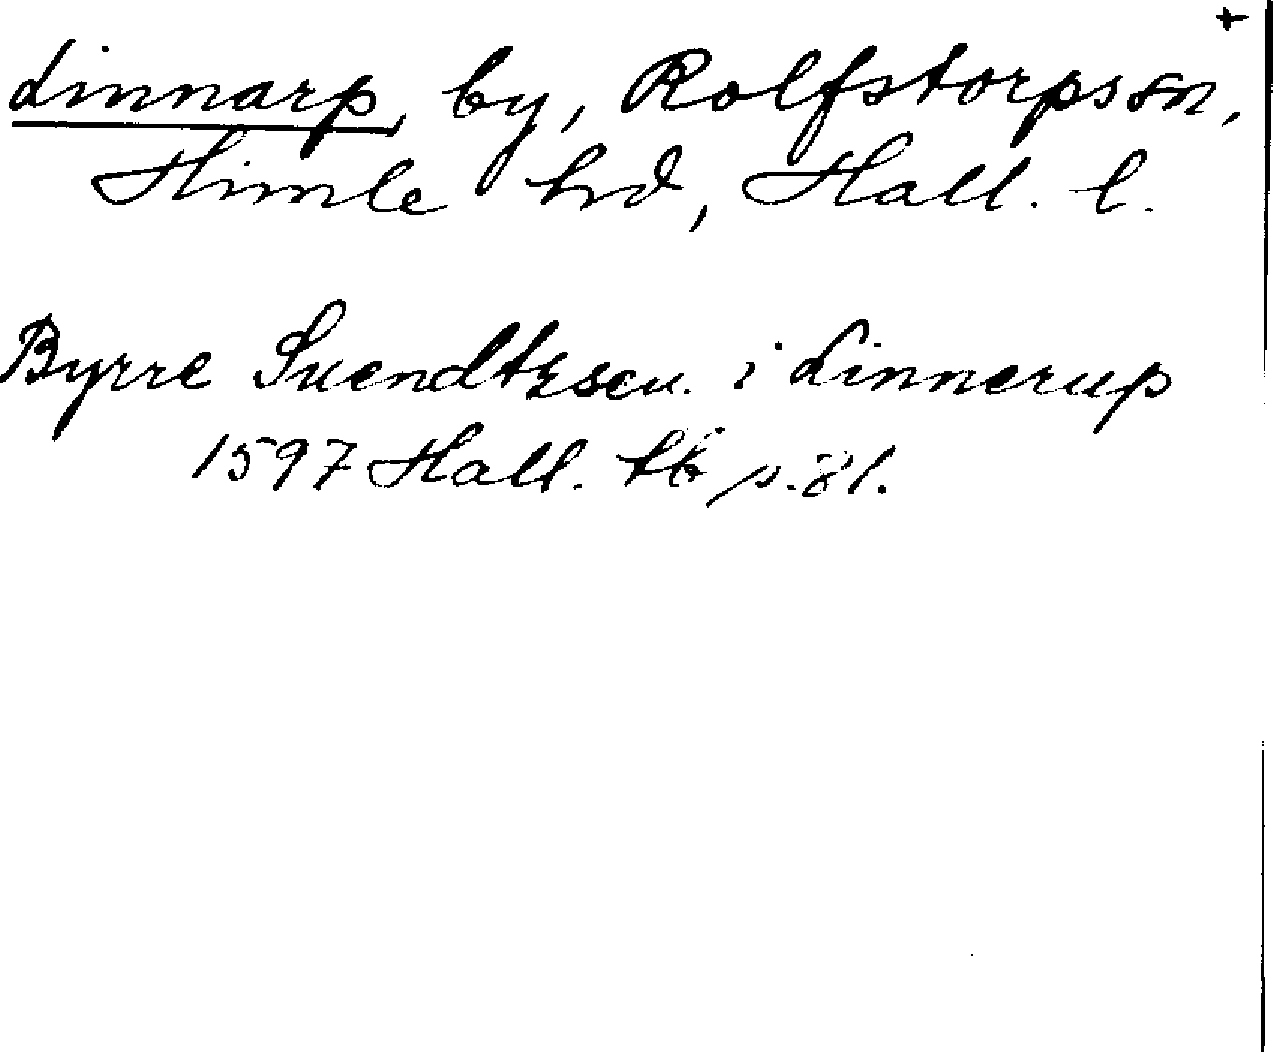 +
Linnarp, by, Rolfstorps sn,
Himle hd, Hall. l.
Byrre Suendtzsen. i Linnerup
1597 Hall. tb p. 81.